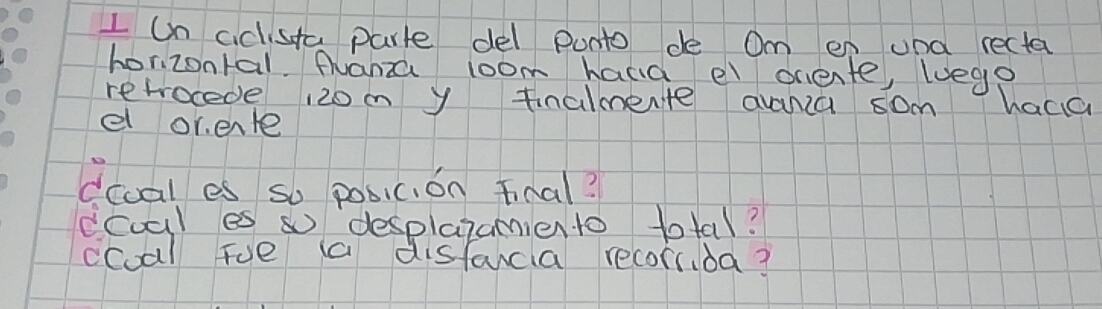 1 Un ciclista parte del punto de 0m en una recta
horizontal. Avanza 100m hacia el oriente, luego
retrocede 120m y finalmente avanza 50m hacia
el oriente
¿cual es su posición final?
¿Cual es su desplazamiento total?
¿Cual fue la distancia recorrida?